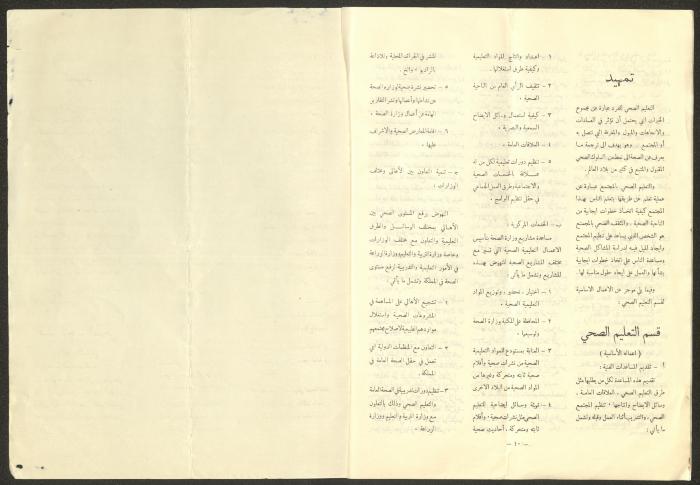 تمهيد
التعليم الصحي للفرد عبارة عن مجموع
الخبرات التي يحتمل أن تؤثر في العادات
والاتجاهات والميول والمعرفة التي تتصل به
أو المجتمع . وهو يهدف الى ترجمة ما
يعرف عن الصحة الى نمط من السلوك الصحي
المقبول والمتبع في كثير من بلاد العالم .
والتعليم الصحي بالمجتمع عبارة عن
عملية تعلم عن طريقها يتعلم الناس بهذا
المجتمع كيفية اتخاذ خطوات ايجابية من
الناحية الصحية . والمثقف الصحي بالمجتمع
هو الشخص الذي يساعد على تنظيم المجتمع
وايجاد الميل فيه لدراسة المشاكل الصحية
ومساعدة الناس على اتخاذ خطوات ايجابية
بشأنها والعمل على ايجاد حلول مناسبة لها .
وفيما يلي موجز عن الاعمال الاساسية
لقسم التعليم الصحي :
قسم التعليم الصحي
( اعماله الأساسية )
أ - تقديم المساعدات الفنية :
تقديم هذه المساعدة لكل من يطلبها مثل
طرق التعليم الصحي ، العلاقات العامة ،
وسائل الايضاح وانتاجها ، تنظيم المجتمع
الصحي ، والتدريب أثناء العمل وقبله وتشمل
ما يأتي :
١ - اعداد وانتاج المواد التعليمية
وكيفية طرق استغلالها .
٢ - تثقيف الرأي العام من الناحية
الصحية .
٣ - كيفية استعمال وسائل الايضاح
السمعية والبصرية .
٤ - العلاقات العامة .
٥ - تنظيم دورات تعليمية لكل من له
علاقة بالخدمات الصحية
والاجتماعية وطرق العمل الجماعي
في حقل تنظيم البرامج .
ب - الخدمات المركزية :
مساعدة مشاريع وزارة الصحة بتأسيس
الاعمال التعليمية الصحية التي تسير مع
مختلف المشاريع الصحية للنهوض بهذه
المشاريع وتشمل ما يأتي :
١ - اختيار ، تحضير ، وتوزيع المواد
التعليمية الصحية .
٢ - المحافظة على المكتبة بوزارة الصحة
وتوسيعها .
٣ - العناية بمستودع المواد التعليمية
الصحية من نشرات صحية وأفلام
صحية ثابتة ومتحركة وغيرها من
المواد الصحية من البلاد الاخرى
٤ - تهيئة وسائل ايضاحية التعليم
الصحي مثل نشرات صحية ، وأفلام
ثابتة ومتحركة ، أحاديث صحية
للنشر في الجرائد المحلية وللاذاعة
بالراديو ، والخ .
٥ - تحضير نشرة صحية لوزارة الصحة
عن نشاطها وأعمالها ونشر التقارير
الهامة عن أعمال وزارة الصحة .
٦ - اقامة المعارض الصحية والاشراف
عليها .
ج - تنمية التعاون بين الأهالي ومختلف
الوزارات :
النهوض برفع المستوى الصحي بين
الأهالي بمختلف الوسائل والطرق
التعليمية والتعاون مع مختلف الوزارات
وخاصة وزارة التربية والتعليم ووزارة الزراعة
في الأمور التعليمية والتدريبية لرفع مستوى
الصحة في المملكة وتشمل ما يأتي :
١ - تشجيع الأهالي على المساهمة في
المشروعات الصحية واستغلال
مواردهم الطبيعية لاصلاح مجتمعهم
٢ - التعاون مع المنظمات الدولية التي
تعمل في حقل الصحة العامة في
المملكة .
٣ - تنظيم دورات تدريبية في الصحة العامة
والتعليم الصحي وذلك بالتعاون
مع وزارة التربية والتعليم ووزارة
الزراعة .
- ١٠ -